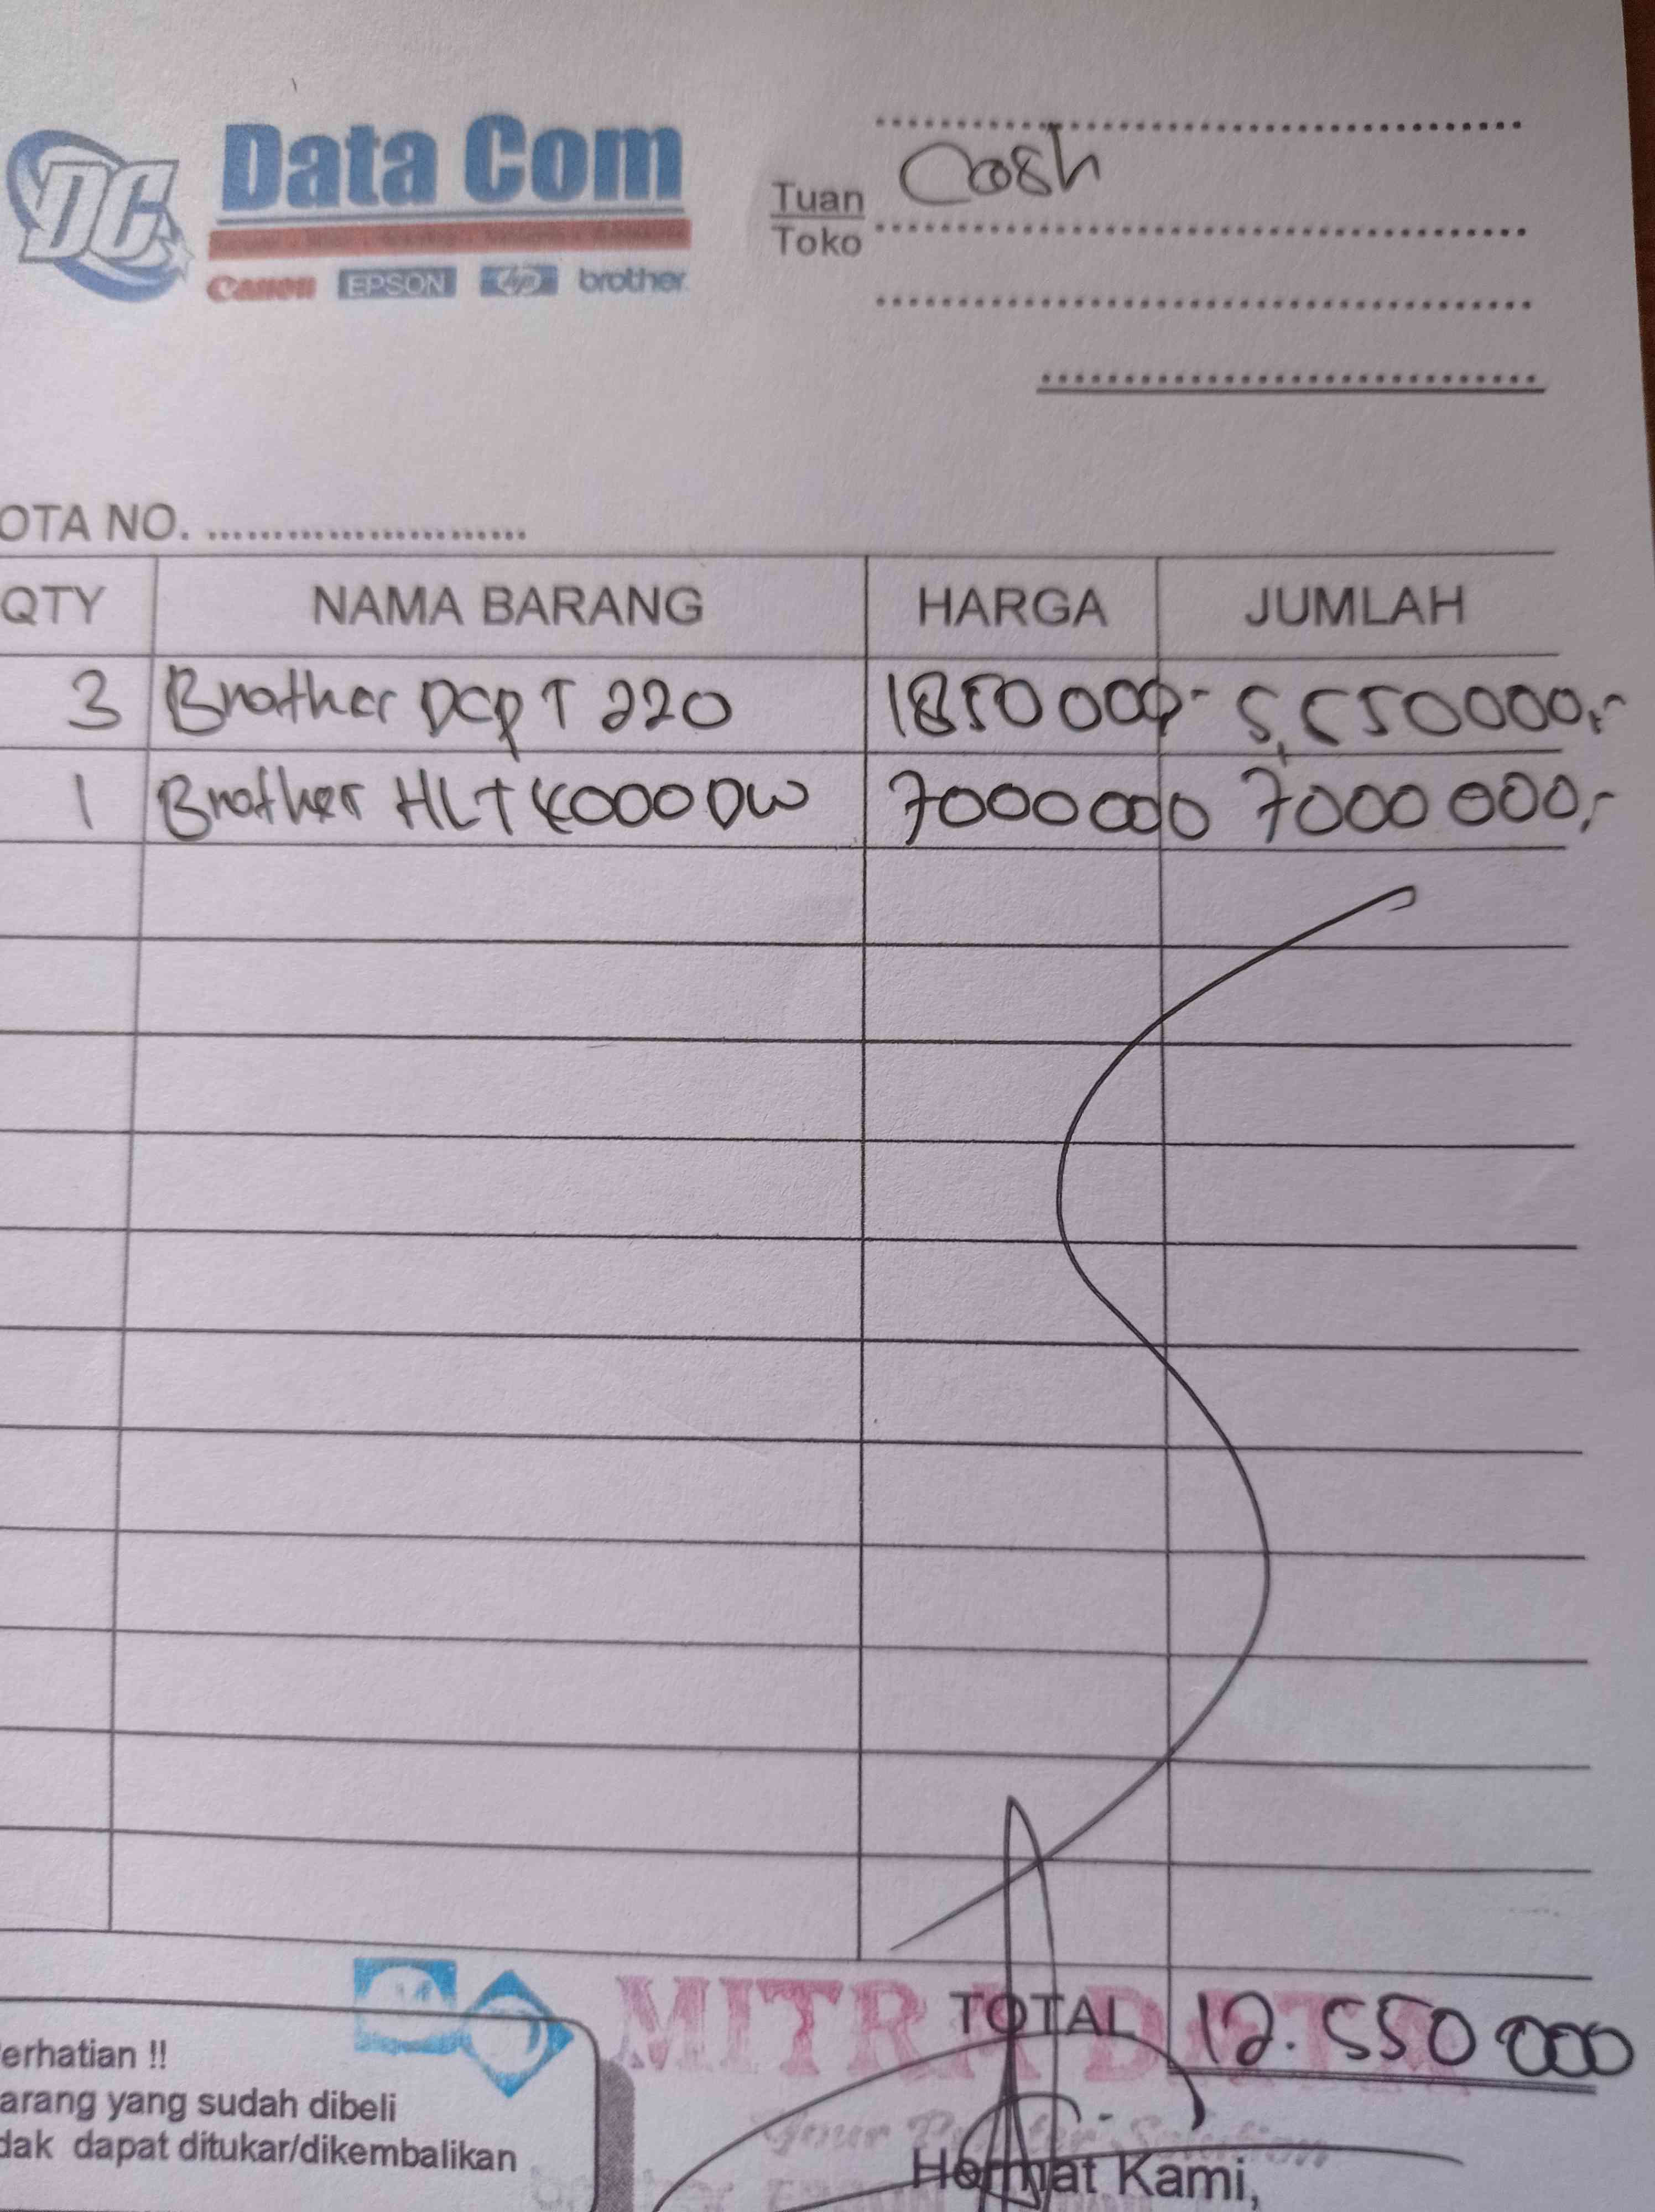 DC Data Com
Canon EPSON hp brother
Tuan
Toko
Cash
OTA NO. ........................
QTY NAMA BARANG HARGA JUMLAH
3 Brother DCP T 220 1850 000,- 5,550000,-
1 Brother HLT4000DW 7000000 7000 000,-
MITRA DATA
TOTAL 12.550 000
erhatian !!
arang yang sudah dibeli
dak dapat ditukar/dikembalikan
Your Printer Solution
Hormat Kami,